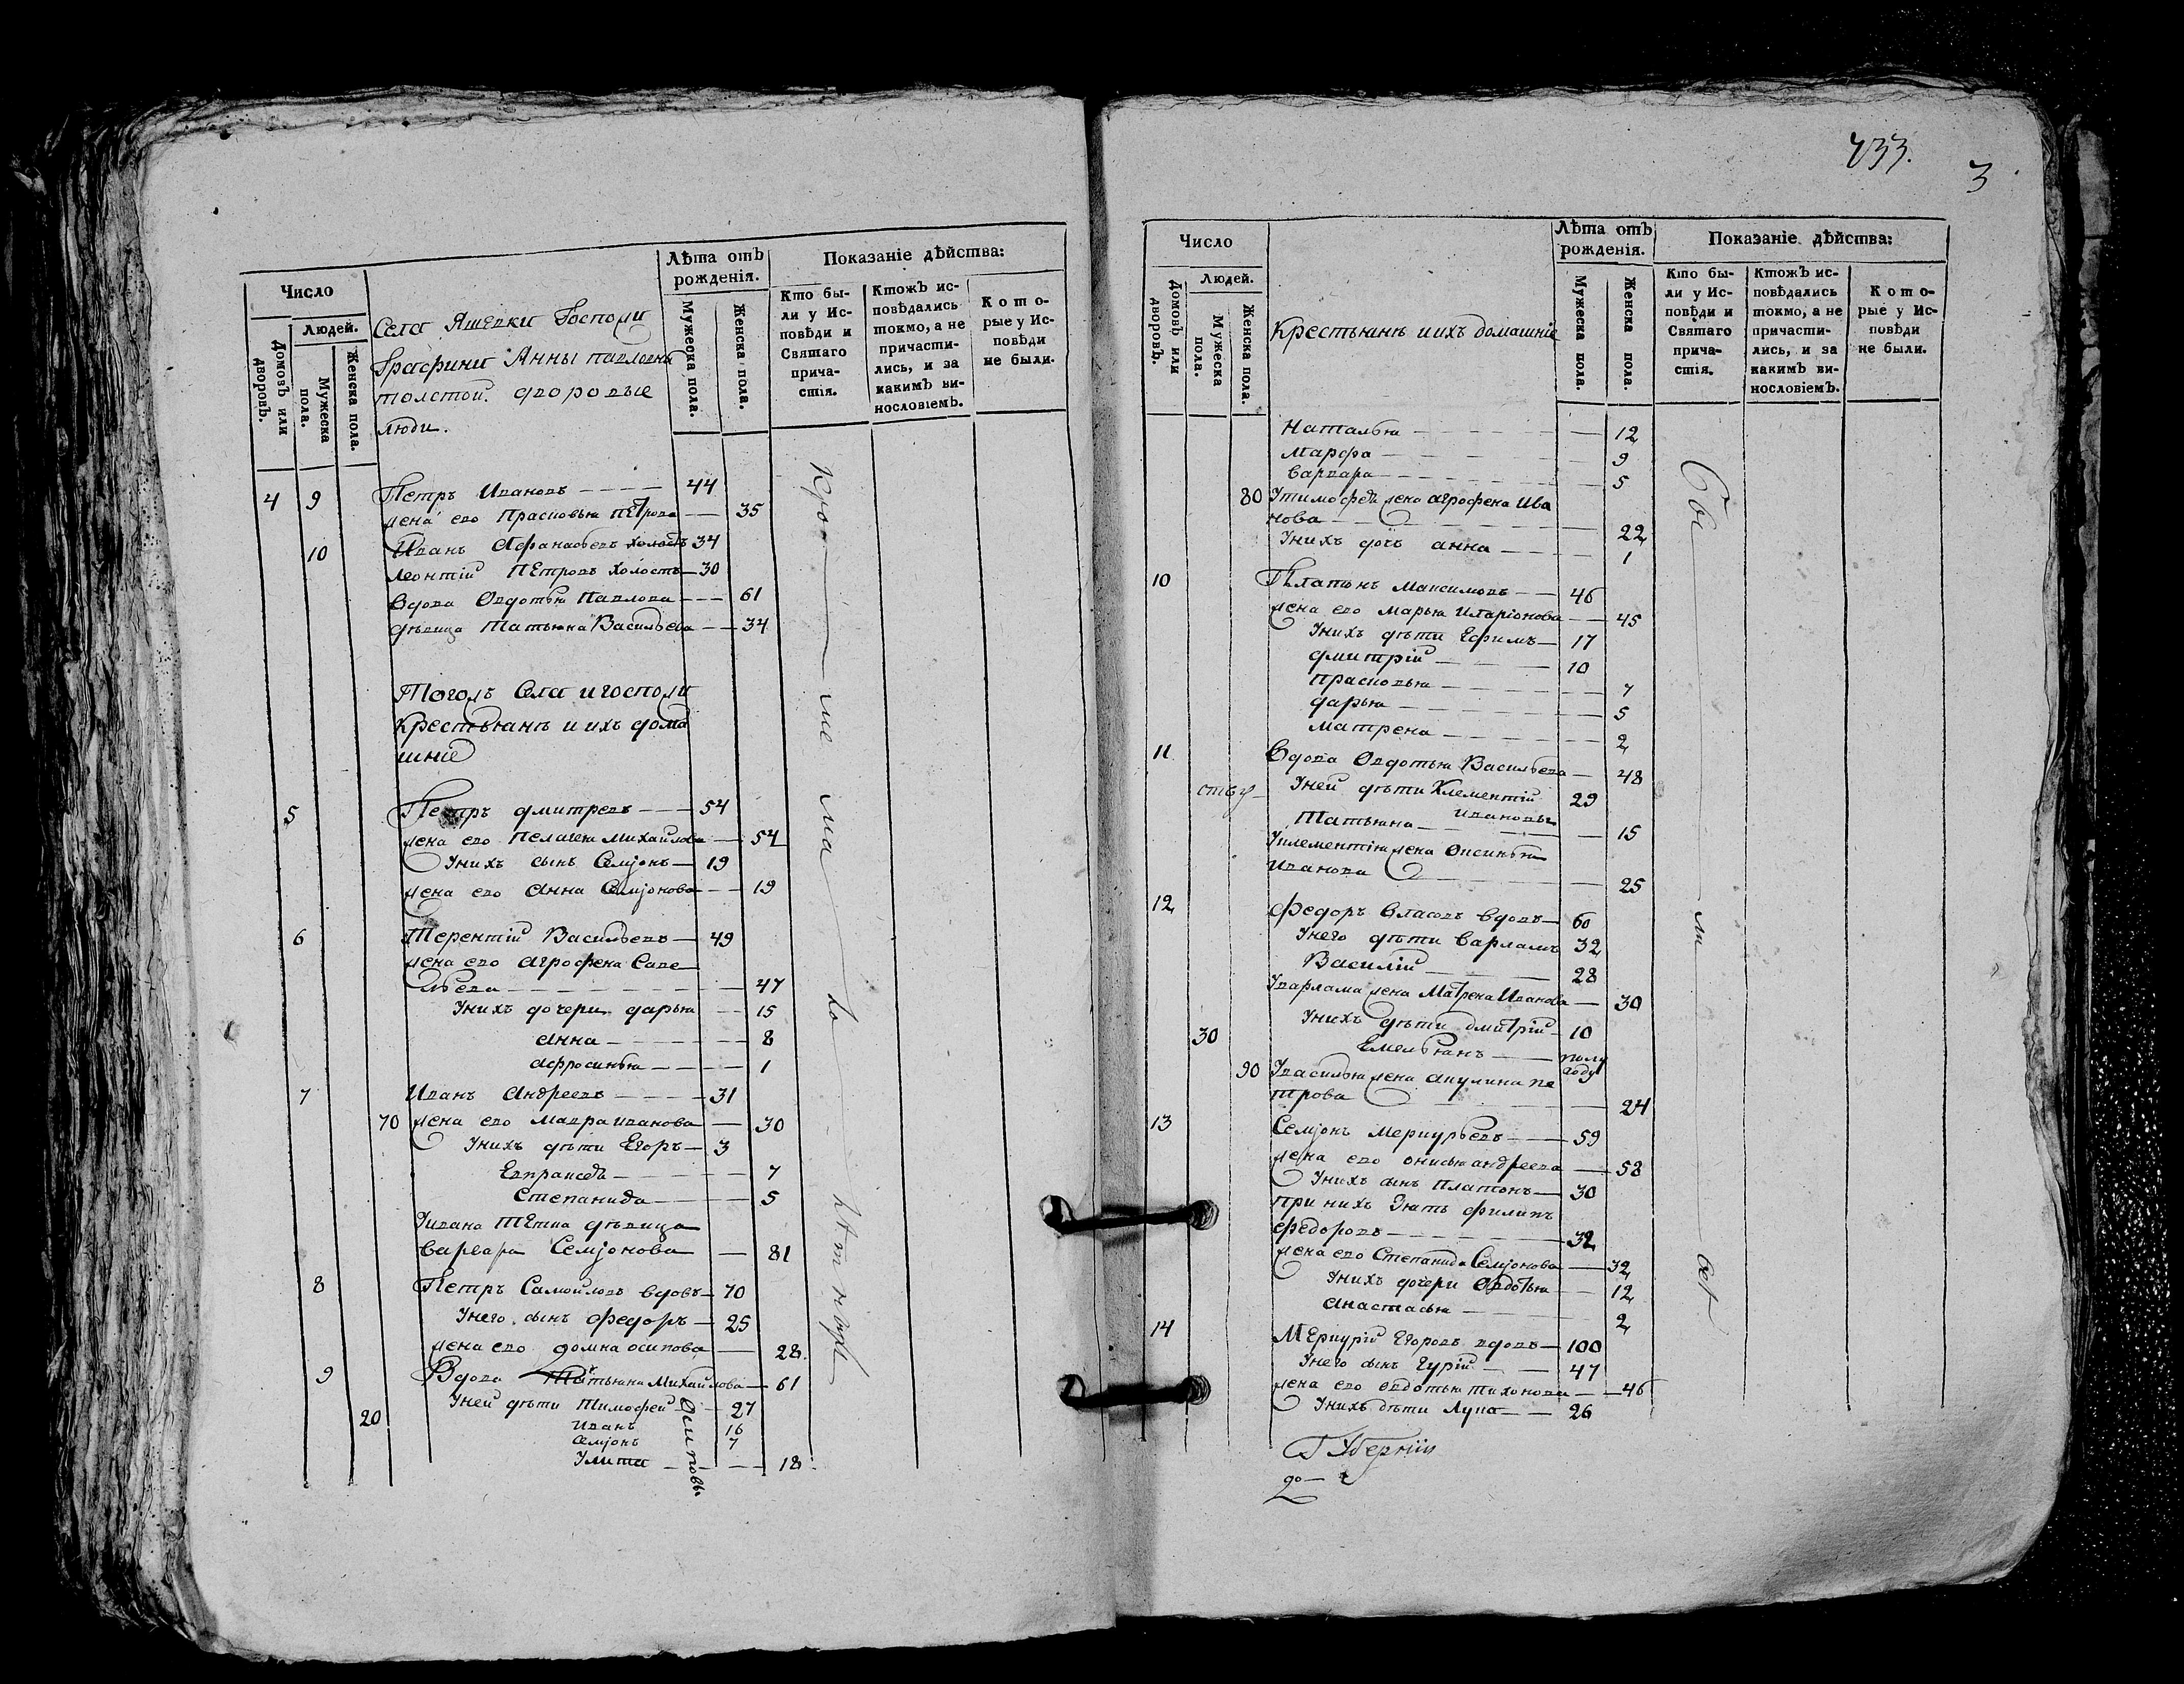 Число
Людей.
Домовъ или дворовъ.
Мужеска пола.
Женска пола.
Села Яшевки Госпожи
Графини Анны павловны
толстой дворовые
люди.
Лѣта отъ рожденія.
Мужеска пола.
Женска пола.
Показаніе дѣйства:
Кто бы-
ли у Ис-
повѣди и
Святаго
прича-
стія.
Ктожъ ис-
повѣдались
токмо, а не
причасти-
лись, и за
какимъ ви-
нословіемъ.
Кото-
рые у Ис-
повѣди
не были.
4 9 Петръ Ивановъ 44
жена ево Прасковья петрова 35
10 Иванъ Афанасьевъ холостъ 34
Леонтій Петровъ холостъ 30
вдова Овдотья Павлова 61
дѣвица Татьяна Васильева 34
Тогожъ села и госпожи
Крестьянѣ и ихъ дома
шніе
5 Петръ дмитревъ 54
жена ево Пелагея Михайлова 54
Уних сынъ Семіонъ 19
жена ево Анна Семіонова 19
6 Терентій Васильевъ 49
жена ево агрофена Саве
льева 47
Унихъ дочери дарья 15
анна 8
афросинья 1
7 Иванъ Андреевъ 31
70 жена ево мавра иванова 30
Унихъ дѣти Егоръ 3
Евпраксея 7
Степанида 5
Уивана тетка дѣвица
варвара Семіонова 81
8 Петръ Самойловъ вдовъ 70
Унего сынъ федоръ 25
жена ево домна осипова 28
9 Вдова Татьяна Михайлова 61
Уней дѣти Тимофей 27
20 Иванъ 16
Семіонъ 7
Улита 18
Осиповы
433.
3
Число
Людей.
Домовъ или дворовъ.
Мужеска пола.
Женска пола.
Крестьянѣ иихъ домашніе
Лѣта отъ рожденія.
Мужеска пола.
Женска пола.
Показаніе дѣйства:
Кто бы-
ли у Ис-
повѣди и
Святаго
прича-
стія.
Ктожъ ис-
повѣдались
токмо, а не
причасти-
лись, и за
какимъ ви-
нословіемъ.
Кото-
рые у Ис-
повѣди
не были.
Наталья 12
Марфа 9
варвара 5
80 Утимофея жена агрофена Ива
нова 22
Унихъ дочь анна 1
10 Платонъ Максимовъ 46
жена ево марья иларіонова 45
Унихъ дѣти Ефимъ 17
дмитрій 10
прасковья 7
дарья 5
матрена 2
11 вдова Овдотья Васильева 48
Уней дѣти Клементій 29
Ивановы
Татьяна 15
Уклементія жена Оксинья
Иванова 25
12 федоръ власовъ вдовъ 60
Унего дѣти варламъ 32
Василій 28
Уварлама жена Матрена Иванова 30
Унихъ дѣти дмитрій 10
30 Емельянъ полу
году
90 Увасилья жена акулина пе
трова 24
13 Семіонъ Меркурьевъ 59
жена ево онисья андреева 58
Унихъ сынъ платонъ 30
При нихъ зять филипъ
федоровъ 32
жена ево Степанида Семіонова 32
Унихъ дочери Овдотья 12
анастасья 2
14 Меркурій Егоровъ вдовъ 100
Унего сынъ Гурій 47
жена ево овдотья тихонова 46
Унихъ дѣти Лука 26
Губерніи